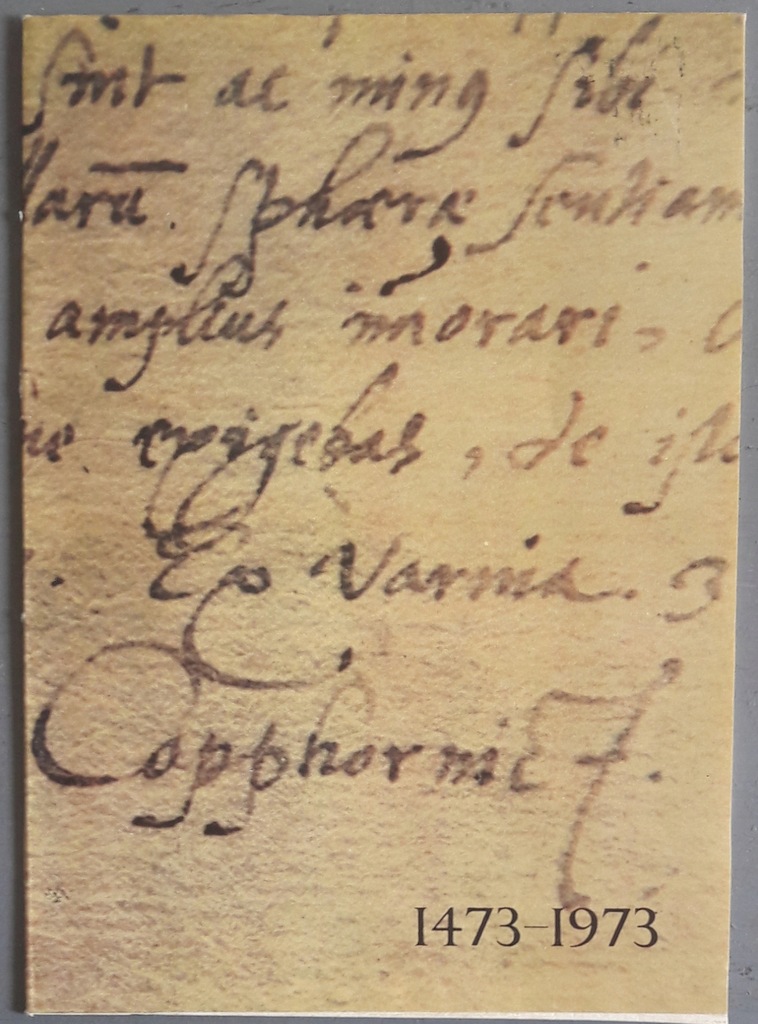 sint ac minus sibi
llarū. sphæræ sentiam
amplius im̄orari,
ne epigedas, de isto
. Ex Varmia. 3
Copphornic
1473–1973